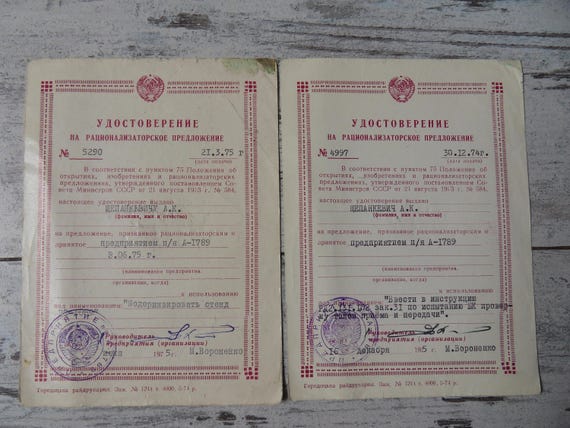 УДОСТОВЕРЕНИЕ
НА РАЦИОНАЛИЗАТОРСКОЕ ПРЕДЛОЖЕНИЕ
№ 5290 21.3.75 г
(дата подачи)
В соответствии с пунктом 75 Положения об
открытиях, изобретениях и рационализаторских
предложениях, утвержденного постановлением Со-
вета Министров СССР от 21 августа 1973 г. № 584,
настоящее удостоверение выдано
А.К.
(фамилия, имя и отчество)
на предложение, признанное рационализаторским и
принятое предприятием п/я А-1789
8.06.75 г.
(наименование предприятия,
организации, когда)
к использованию
под наименованием: "Модернизировать стенд
Руководитель
предприятия (организации)
1975г. М.Вороненко
Городецкая райдрукарня Зак. № 1244 т. 4000, 5-74 р.
УДОСТОВЕРЕНИЕ
НА РАЦИОНАЛИЗАТОРСКОЕ ПРЕДЛОЖЕНИЕ
№ 4997 30.12.74г.
(дата подачи)
В соответствии с пунктом 75 Положения об
открытиях, изобретениях и рационализаторских
предложениях, утвержденного постановлением Со-
вета Министров СССР от 21 августа 1973 г. № 584,
настоящее удостоверение выдано
ЩЕПАНКЕВИЧ А.К.
(фамилия, имя и отчество)
на предложение, признанное рационализаторским и
принятое предприятием п/я А-1789
(наименование предприятия,
организации, когда)
к использованию
"Ввести в инструкции
зак.31 по испытанию БК провер-
ку цепей приема и передачи".
Руководитель
предприятия (организации)
декабря 1975г. М.Вороненко
Городецкая райдрукарня Зак. № 1244 т. 4000, 5-74 р.